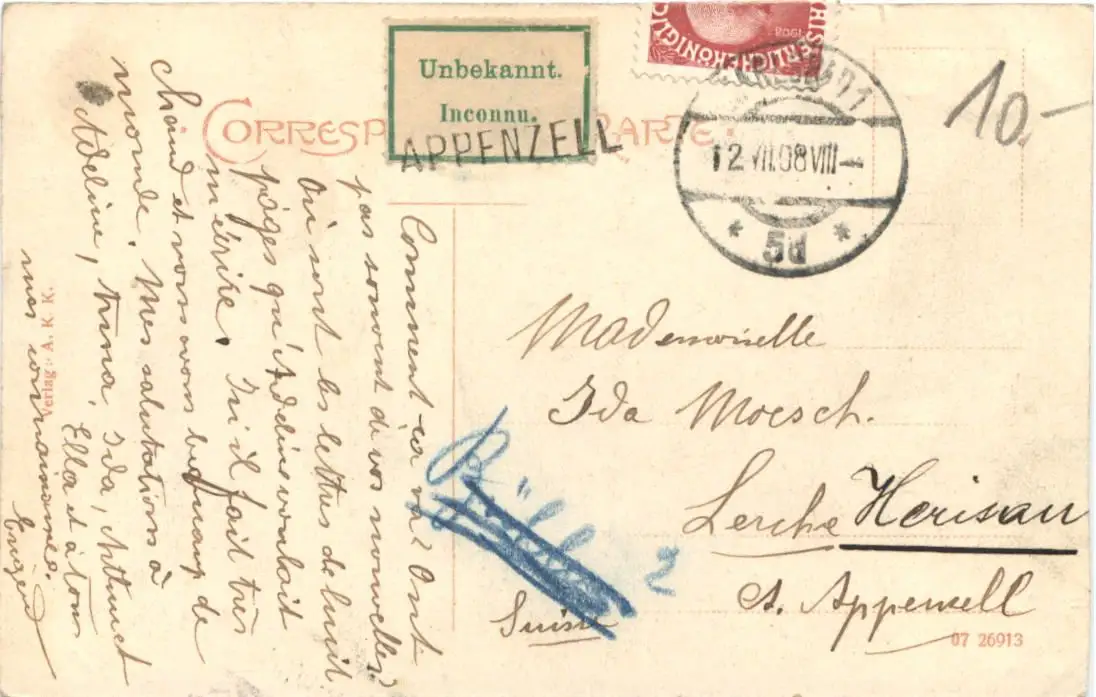 Unbekannt.
Inconnu.
APPENZELL
CORRESP
KARTE.
KAISERLICHEKÖNIGLICH
12 VII 08 VIII
* 5d *
10.-
Mademoiselle
Ida Moesch.
Lerche Herisau
ct. Appenzell
Suisse
2
07 26913
Verlag: A. K. K.
Comment ça va? Ont
pas souvent de vos nouvelles?
Où sont les lettres de huit
pages qu'Adeline voulait
m'écrire. Ici il fait très
chaud et nous avons beaucoup de
monde. Mes salutations à
Adeline, Ida,
Ella et à tous
mes
Eugen